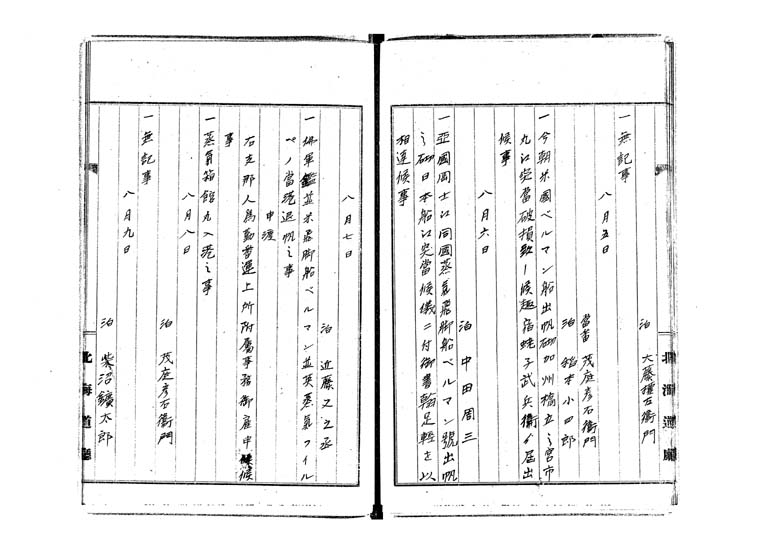 泊 大藤権左衞門
一無記事
八月五日
當番 茂庭彦右衞門
泊 稲本小四郎
一今朝米國ベルマン船出帆砌加州橋立之宮市
丸江突當破損致シ候趣宿蛯子武兵衞ゟ届出
候事
八月六日
泊 中田周三
一亞國岡士江同國蒸氣飛脚船ベルマン號出帆
之砌日本船江突當候儀ニ付御書翰足輕を以
相達候事
八月七日
泊 近藤又之丞
一佛軍艦並米飛脚船ベルマン並英蒸氣フイル
ペノ當港退帆之事
申渡
右支那人為勤當運上所附屬事務御雇申候
事
一蒸氣箱館丸入港之事
八月八日
泊 茂庭彦右衞門
一無記事
八月九日
泊 柴沼鑛太郎
北海道廳
北海道廳